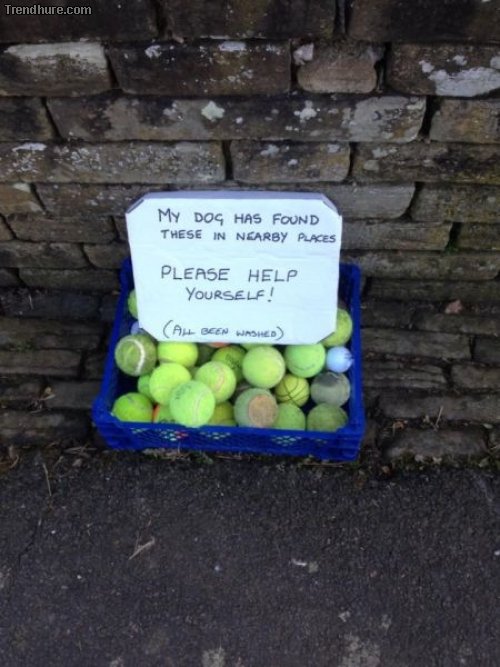 Trendhure.com
MY DOG HAS FOUND
THESE IN NEARBY PLACES
PLEASE HELP
YOURSELF!
(ALL BEEN WASHED)